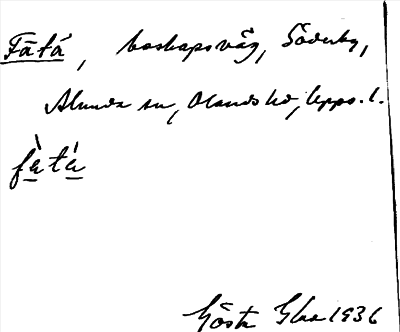 Fätá, boskapsväg, Söderby,
Alunda sn, Olands hd, Upps. l.
fàtá
Gösta 1936